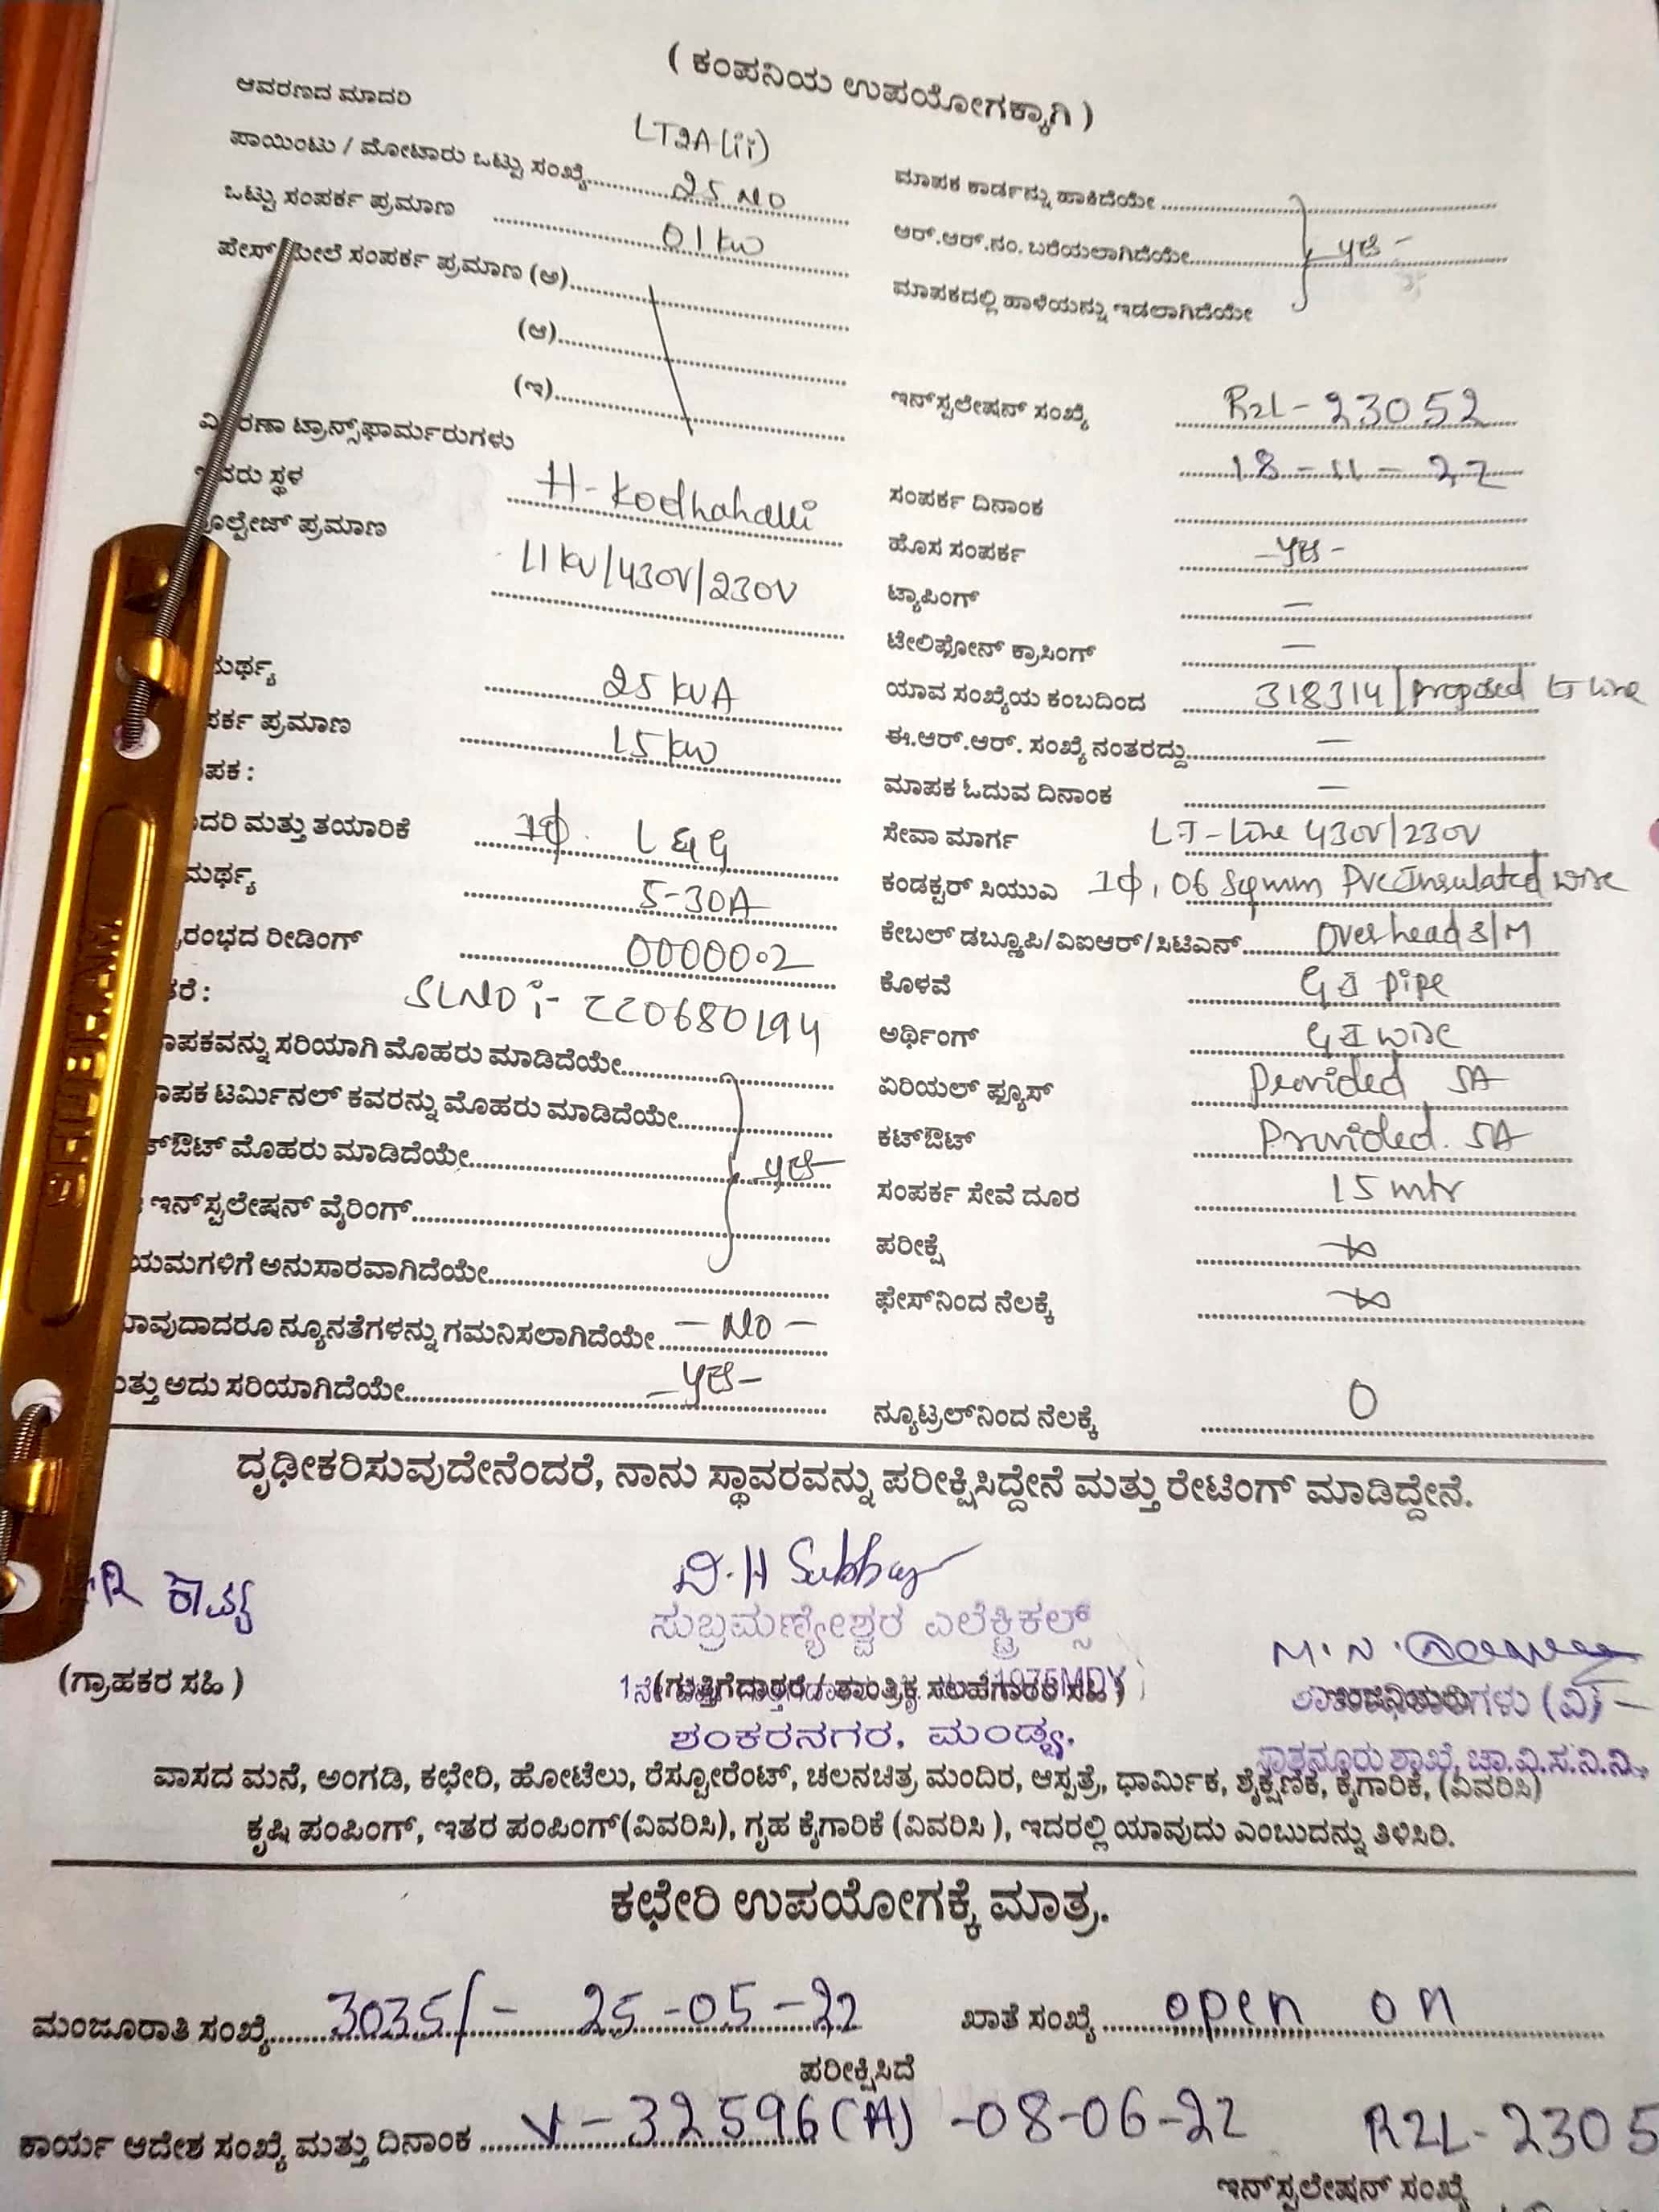 ( ಕಂಪನಿಯ ಉಪಯೋಗಕ್ಕಾಗಿ )
ಆವರಣದ ಮಾದರಿ LT2A(ii)
ಪಾಯಿಂಟು / ಮೋಟಾರು ಒಟ್ಟು ಸಂಖ್ಯೆ 25 NO
ಒಟ್ಟು ಸಂಪರ್ಕ ಪ್ರಮಾಣ 01 kw
ಪೇಸ್ ಮೇಲೆ ಸಂಪರ್ಕ ಪ್ರಮಾಣ (ಅ)
(ಆ)
(ಇ)
ಟ್ರಾನ್ಸ್‌ಫಾರ್ಮರುಗಳು
ಸ್ಥಳ H-Kodhahalli
ಪ್ರಮಾಣ 11kv/430V/230V
25 kVA
ಪ್ರಮಾಣ 15 kw
ಮತ್ತು ತಯಾರಿಕೆ 1ϕ. L&G
5-30A
ರೀಡಿಂಗ್ 000000.2
SLNO :- 220680194
ಸರಿಯಾಗಿ ಮೊಹರು ಮಾಡಿದೆಯೇ
ಟರ್ಮಿನಲ್ ಕವರನ್ನು ಮೊಹರು ಮಾಡಿದೆಯೇ
ಮೊಹರು ಮಾಡಿದೆಯೇ yes
ಇನ್‌ಸ್ಟಲೇಷನ್ ವೈರಿಂಗ್
ಅನುಸಾರವಾಗಿದೆಯೇ
ನ್ಯೂನತೆಗಳನ್ನು ಗಮನಿಸಲಾಗಿದೆಯೇ – NO –
ಅದು ಸರಿಯಾಗಿದೆಯೇ – yes –
ಮಾಪಕ ಕಾರ್ಡನ್ನು ಹಾಕಿದೆಯೇ
ಆರ್.ಆರ್.ನಂ. ಬರೆಯಲಾಗಿದೆಯೇ yes –
ಮಾಪಕದಲ್ಲಿ ಹಾಳೆಯನ್ನು ಇಡಲಾಗಿದೆಯೇ
ಇನ್‌ಸ್ಟಲೇಷನ್ ಸಂಖ್ಯೆ R2L-23052
18-11-22
ಸಂಪರ್ಕ ದಿನಾಂಕ
ಹೊಸ ಸಂಪರ್ಕ – yes –
ಟ್ಯಾಪಿಂಗ್ –
ಟೇಲಿಫೋನ್ ಕ್ರಾಸಿಂಗ್ –
ಯಾವ ಸಂಖ್ಯೆಯ ಕಂಬದಿಂದ 318314/proposed LT line
ಈ.ಆರ್.ಆರ್. ಸಂಖ್ಯೆ ನಂತರದ್ದು –
ಮಾಪಕ ಓದುವ ದಿನಾಂಕ –
ಸೇವಾ ಮಾರ್ಗ LT-Line 430V/230V
ಕಂಡಕ್ಟರ್ ಸಿಯುಎ 1ϕ, 06 Sqmm PVC Insulated wire
ಕೇಬಲ್ ಡಬ್ಲ್ಯೂಪಿ/ವಿಐಆರ್/ಸಿಟಿಎನ್ Overhead S/M
ಕೊಳವೆ GI pipe
ಅರ್ಥಿಂಗ್ GI wire
ಏರಿಯಲ್ ಫ್ಯೂಸ್ Provided 5A
ಕಟ್‌ಔಟ್ Provided. 5A
ಸಂಪರ್ಕ ಸೇವೆ ದೂರ 15 mtr
ಪರೀಕ್ಷೆ
ಫೇಸ್‌ನಿಂದ ನೆಲಕ್ಕೆ
ನ್ಯೂಟ್ರಲ್‌ನಿಂದ ನೆಲಕ್ಕೆ 0
ದೃಢೀಕರಿಸುವುದೇನೆಂದರೆ, ನಾನು ಸ್ಥಾವರವನ್ನು ಪರೀಕ್ಷಿಸಿದ್ದೇನೆ ಮತ್ತು ರೇಟಿಂಗ್ ಮಾಡಿದ್ದೇನೆ.
D.H Subbay
ಸುಬ್ರಮಣ್ಯೇಶ್ವರ ಎಲೆಕ್ಟ್ರಿಕಲ್ಸ್
(ಗ್ರಾಹಕರ ಸಹಿ) (ಗುತ್ತಿಗೆದಾರರ / ತಾಂತ್ರಿಕ ಸಲಹೆಗಾರರ ಸಹಿ) M.N.
ಶಂಕರನಗರ, ಮಂಡ್ಯ.
ಸಾತನೂರು ಶಾಖೆ, ಚಾ.ವಿ.ಸ.ನಿ.ನಿ.,
ವಾಸದ ಮನೆ, ಅಂಗಡಿ, ಕಛೇರಿ, ಹೋಟೆಲು, ರೆಸ್ಟೋರೆಂಟ್, ಚಲನಚಿತ್ರ ಮಂದಿರ, ಆಸ್ಪತ್ರೆ, ಧಾರ್ಮಿಕ, ಶೈಕ್ಷಣಿಕ, ಕೈಗಾರಿಕೆ, (ವಿವರಿಸಿ)
ಕೃಷಿ ಪಂಪಿಂಗ್, ಇತರ ಪಂಪಿಂಗ್(ವಿವರಿಸಿ), ಗೃಹ ಕೈಗಾರಿಕೆ (ವಿವರಿಸಿ ), ಇದರಲ್ಲಿ ಯಾವುದು ಎಂಬುದನ್ನು ತಿಳಿಸಿರಿ.
ಕಛೇರಿ ಉಪಯೋಗಕ್ಕೆ ಮಾತ್ರ.
ಮಂಜೂರಾತಿ ಸಂಖ್ಯೆ 3035/- 25-05-22 ಖಾತೆ ಸಂಖ್ಯೆ open on
ಪರೀಕ್ಷಿಸಿದೆ
ಕಾರ್ಯ ಆದೇಶ ಸಂಖ್ಯೆ ಮತ್ತು ದಿನಾಂಕ V-32596(A) -08-06-22 R2L-2305
ಇನ್‌ಸ್ಟಲೇಷನ್ ಸಂಖ್ಯೆ